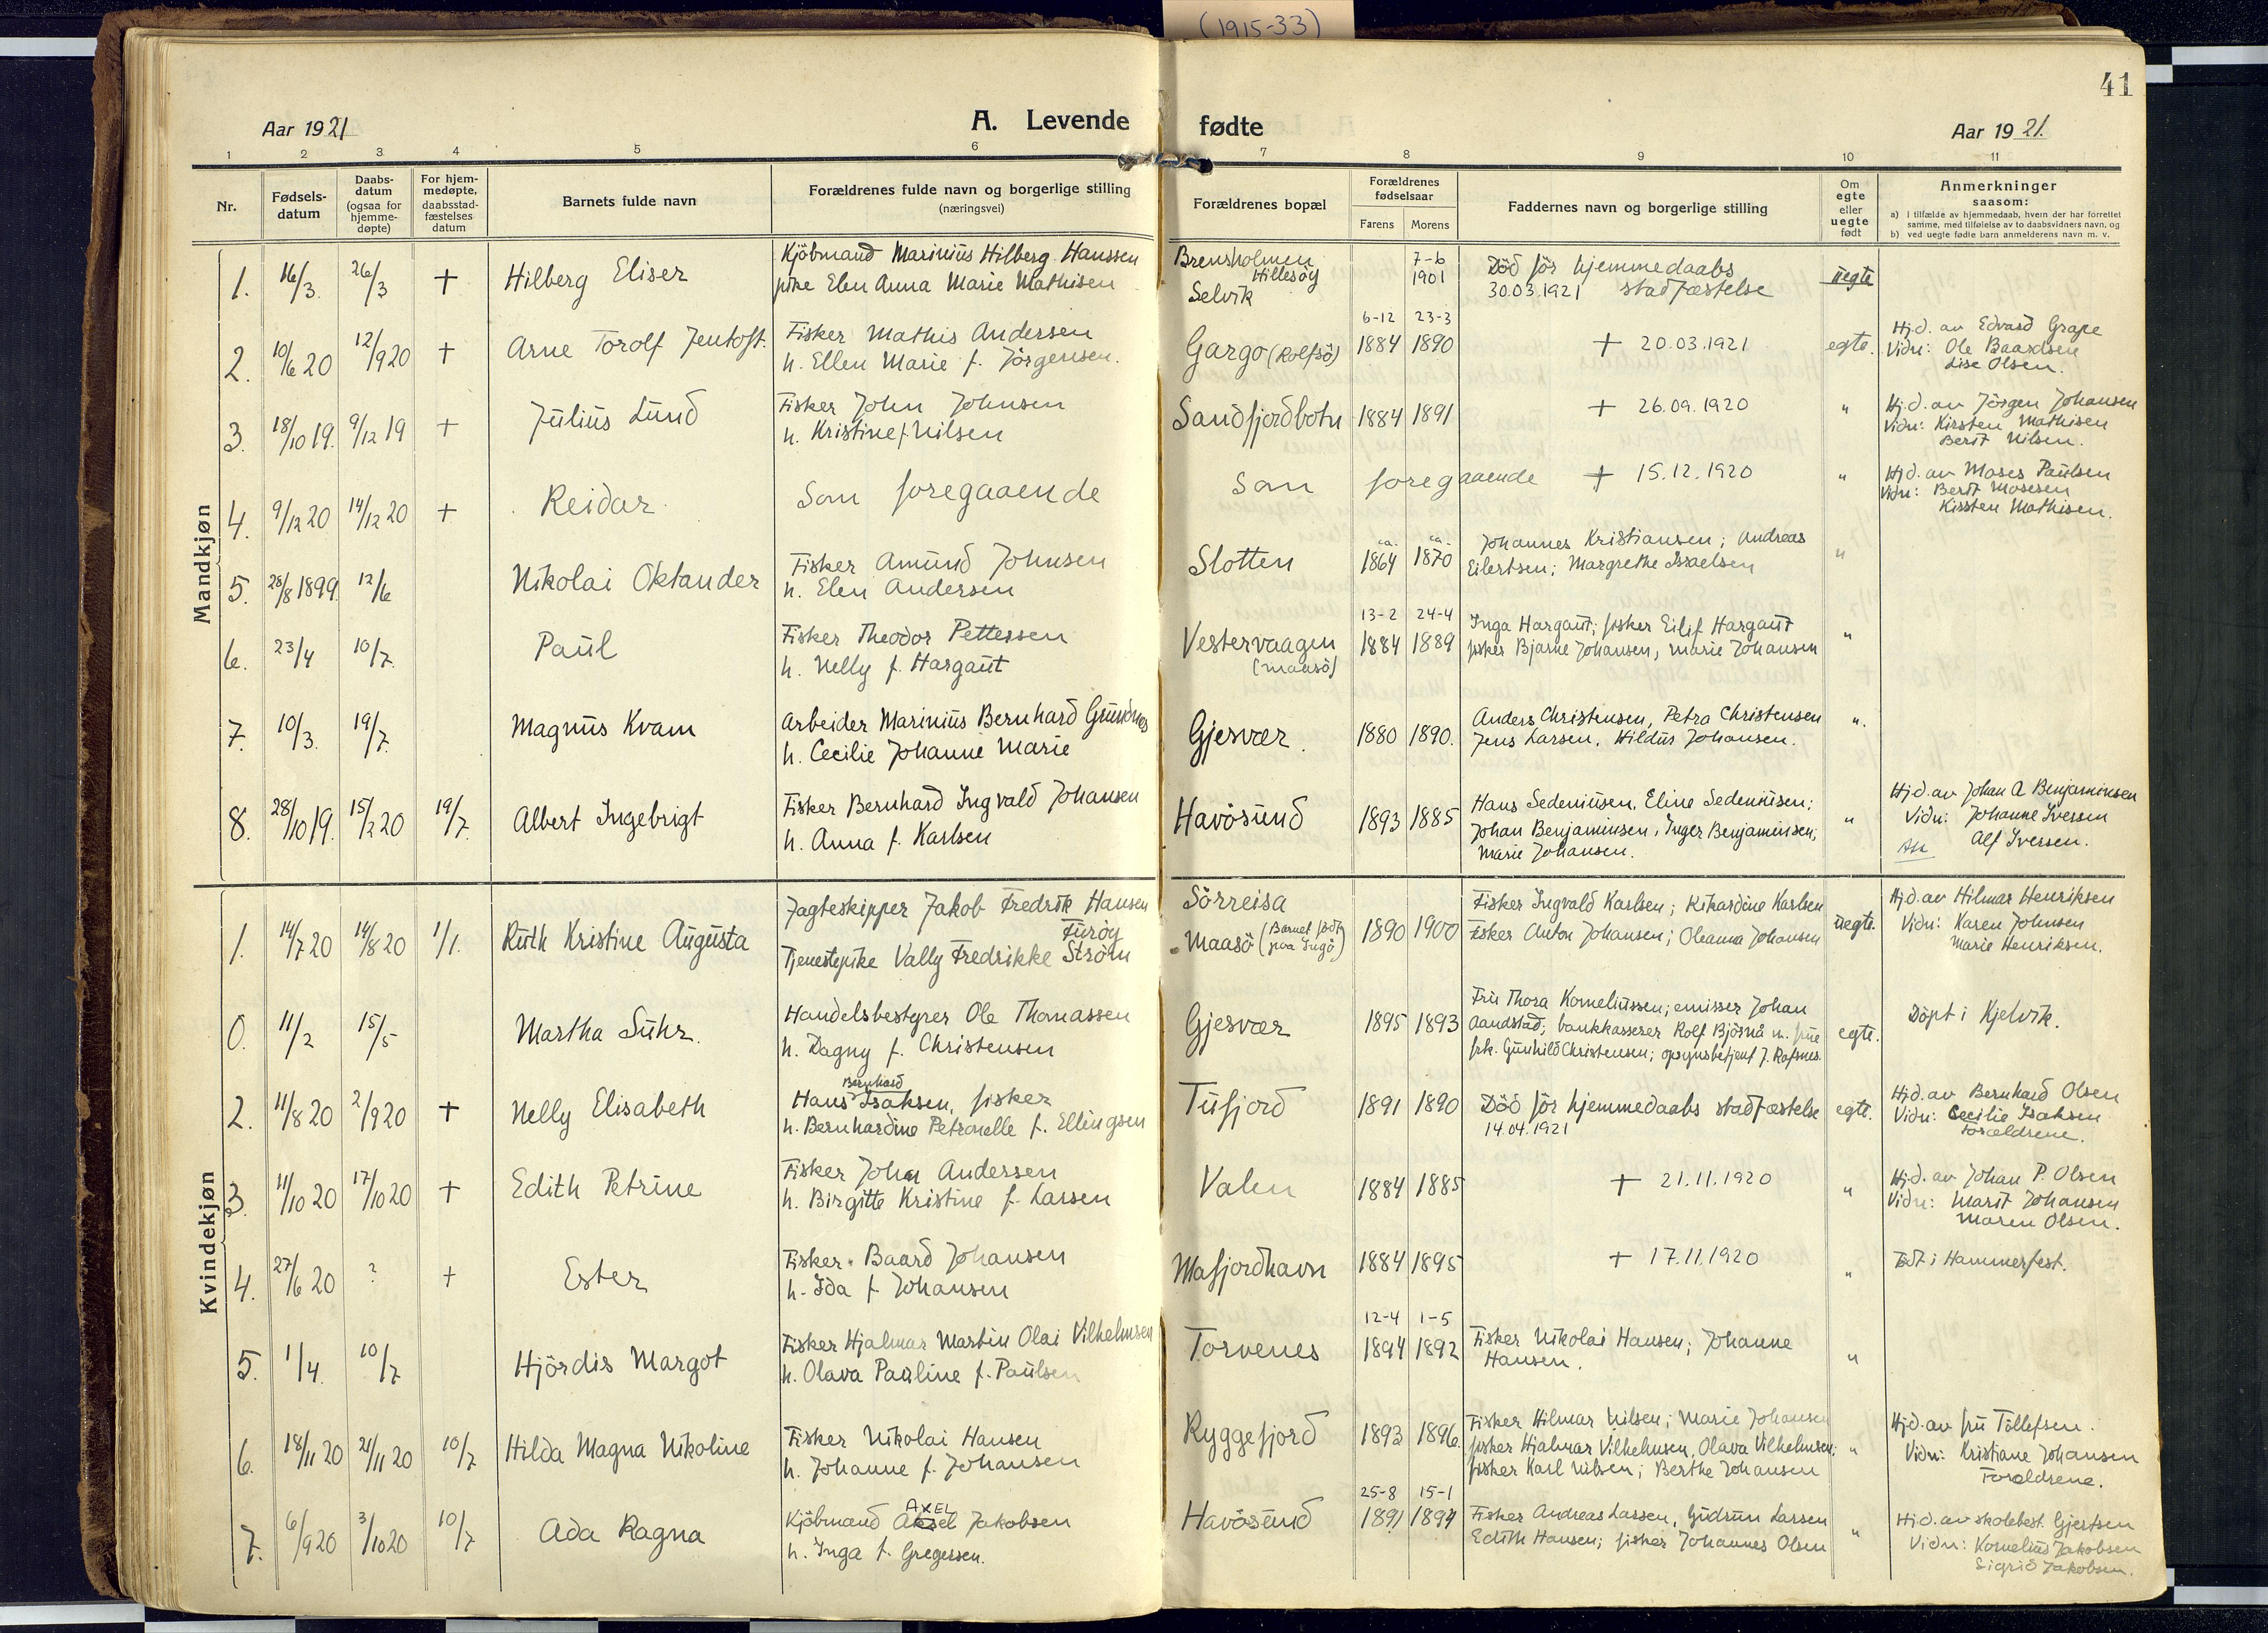 (1915-33)
41
Aar 1921
A. Levende
fødte
Aar 1921.
1 2 3 4 5 6 7 8 9 10 11
Nr.
Fødsels-
datum
Daabs-
datum
(ogsaa for
hjemme-
døpte)
For hjem-
medøpte,
daabsstad-
fæstelses
datum
Barnets fulde navn
Forældrenes fulde navn og borgerlige stilling
(næringsvei)
Forældrenes bopæl
Forældrenes
fødselsaar
Farens Morens
Faddernes navn og borgerlige stilling
Om
egte
eller
uegte
født
Anmerkninger
saasom:
a) i tilfælde av hjemmedaab, hvem der har forrettet
samme, med tilføielse av to daabsvidners navn, og
b) ved uegte fødte barn anmelderens navn m. v.
Mandkjøn
1. 16/3. 26/3 + Hilberg Eliser
Kjöbmand Marinius Hilberg Hanssen
pike Elen Anna Marie Mathisen
Brensholmen
Hillesöy
Selvik
7-6
1901
Död för hjemmedaabs
30.03.1921 stadfæstelse
uegte
2. 10/6 20 12/9 20 + Arne Torolf Jentoft.
Fisker Mathis Andersen
h. Ellen Marie f. Jörgensen.
Gargo (Rolfsö)
6-12 23-3
1884 1890
+ 20.03.1921
egte.
Hj.d. av Edvard Grape
Vidn: Ole Baardsen
Lise Olsen.
3. 18/10 19. 9/12 19 + Julius Lund
Fisker John Johnsen
h. Kristine f. Nilsen
Sandfjordbotn 1884 1891
+ 26.09.1920
"
Hj.d. av Jörgen Johansen
Vidn: Kirsten Mathisen
Berit Nilsen.
4. 9/12 20 14/12 20 + Reidar
Som foregaaende
Som foregaaende
+ 15.12.1920
"
Hj.d. av Moses Paulsen
Vidn: Berit Mosesen
Kirsten Mathisen.
5. 28/8 1899. 12/6 Nikolai Oktander
Fisker Amund Johnsen
h. Elen Andersen
Slotten
ca. ca.
1864 1870
Johannes Kristiansen; Andreas
Eilertsen; Margrethe Israelsen
"
6. 23/4 10/7. Paul
Fisker Theodor Pettersen
h. Nelly f. Hargaut
Vestervaagen
(Maasö)
13-2 24-4
1884 1889
Inga Hargaut; fisker Eilif Hargaut
fisker Bjarne Johansen, Marie Johansen
"
7. 10/3. 19/7. Magnus Kvam
Arbeider Marinius Bernhard Grundnes
h. Cecilie Johanne Marie
Gjesvær. 1880 1890.
Anders Christensen, Petra Christensen
Jens Larsen, Hildur Johansen.
".
8. 28/10 19. 15/2 20 19/7. Albert Ingebrigt
Fisker Bernhard Ingvald Johansen
h. Anna f. Karlsen
Havösund 1893 1885
Hans Sedeniusen, Eline Sedeniusen;
Johan Benjaminsen, Inger Benjaminsen;
Marie Johansen.
"
Hj.d. av Johan A Benjaminsen
Vidn: Johanne Iversen
Alf Iversen.
Kvindekjøn
1. 14/7 20 14/8 20 1/1. Ruth Kristine Augusta
Jagteskipper Jakob Fredrik Hansen
Furöy
Tjenestepike Vally Fredrikke Ström
Sörreisa
Maasö (Barnet födt
paa Ingö)
1890 1900
Fisker Ingvald Karlsen; Rikardine Karlsen
Fisker Anton Johansen; Oleanna Johansen
uegte.
Hj.d. av Hilmar Henriksen
Vidn: Karen Johnsen
Marie Henriksen.
0. 11/2 15/5 Martha Suhr.
Handelsbestyrer Ole Thomassen
h. Dagny f. Christensen
Gjesvær 1895 1893
Fru Thora Korneliussen; emissær Johan
Aandstad; bankkasserer Rolf Björnå n. frue
frk. Gunhild Christensen; opsynsbetjent J. Rafsnes.
egte.
Döpt i Kjelvik.
2. 11/8 20 2/9 20 + Nelly Elisabeth
Bernhard
Hans Isaksen, fisker
h. Bernhardine Petronelle f. Ellingsen
Tufjord 1891 1890
Död för hjemmedaabs stadfæstelse
14.04.1921
egte.
Hj.d. av Bernhard Olsen
Vidn: Cecilie Isaksen
Forældrene.
3. 11/10 20 17/10 20 + Edith Petrine
Fisker Johan Andersen
h. Birgitte Kristine f. Larsen
Valen 1884 1885
+ 21.11.1920
"
Hj.d. av Johan P. Olsen
Vidn: Marit Johansen
Maren Olsen.
4. 27/6 20 ? + Ester
Fisker Baard Johansen
h. Ida f. Johansen
Mafjordhavn 1884 1895
+ 17.11.1920
"
Födt i Hammerfest.
5. 1/4. 10/7 Hjördis Margot
Fisker Hjalmar Martin Olai Vilhelmsen
h. Olava Pauline f. Paulsen
Torvenes
12-4 1-5
1894 1892
Fisker Nikolai Hansen; Johanne
Hansen.
"
6. 18/11 20 21/11 20 10/7 Hilda Magna Nikoline
Fisker Nikolai Hansen
h. Johanne f. Johansen
Ryggefjord 1893 1896.
Fisker Hilmar Nilsen; Marie Johansen
fisker Hjalmar Vilhelmsen, Olava Vilhelmsen;
fisker Karl Nilsen; Berthe Johansen
"
Hj.d. av fru Tollefsen.
Vidn: Kristiane Johansen
Forældrene.
7. 6/9 20 3/10 20 10/7 Ada Ragna
AXEL
Kjöbmand Aksel Jakobsen
h. Inga f. Gregersen.
Havösund
25-8 15-1
1891 1894
Fisker Andreas Larsen, Gudrun Larsen
Edith Hansen; fisker Johannes Olsen
"
Hj.d. av skolebest. Gjertsen
Vidn: Kornelius Jakobsen
Sigrid Jakobsen.